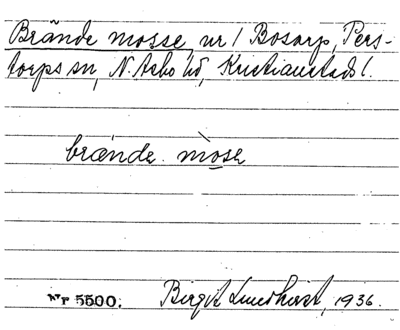 Brände mosse, nr 1 Bosarp, Pers-
torps sn, N. Åsbo hd, Kristianstads l.
brände mòse
Nr 5500. Birgit Lundkvist, 1936.